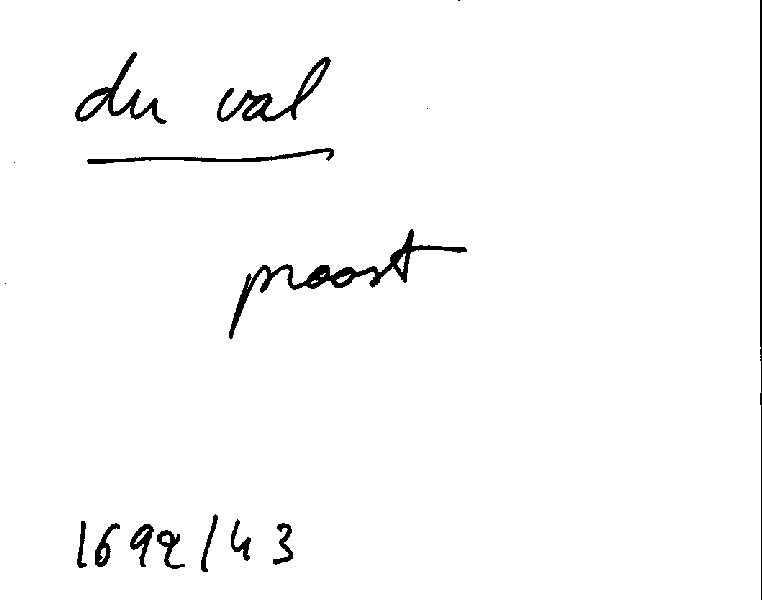 du val
proost
1692/43